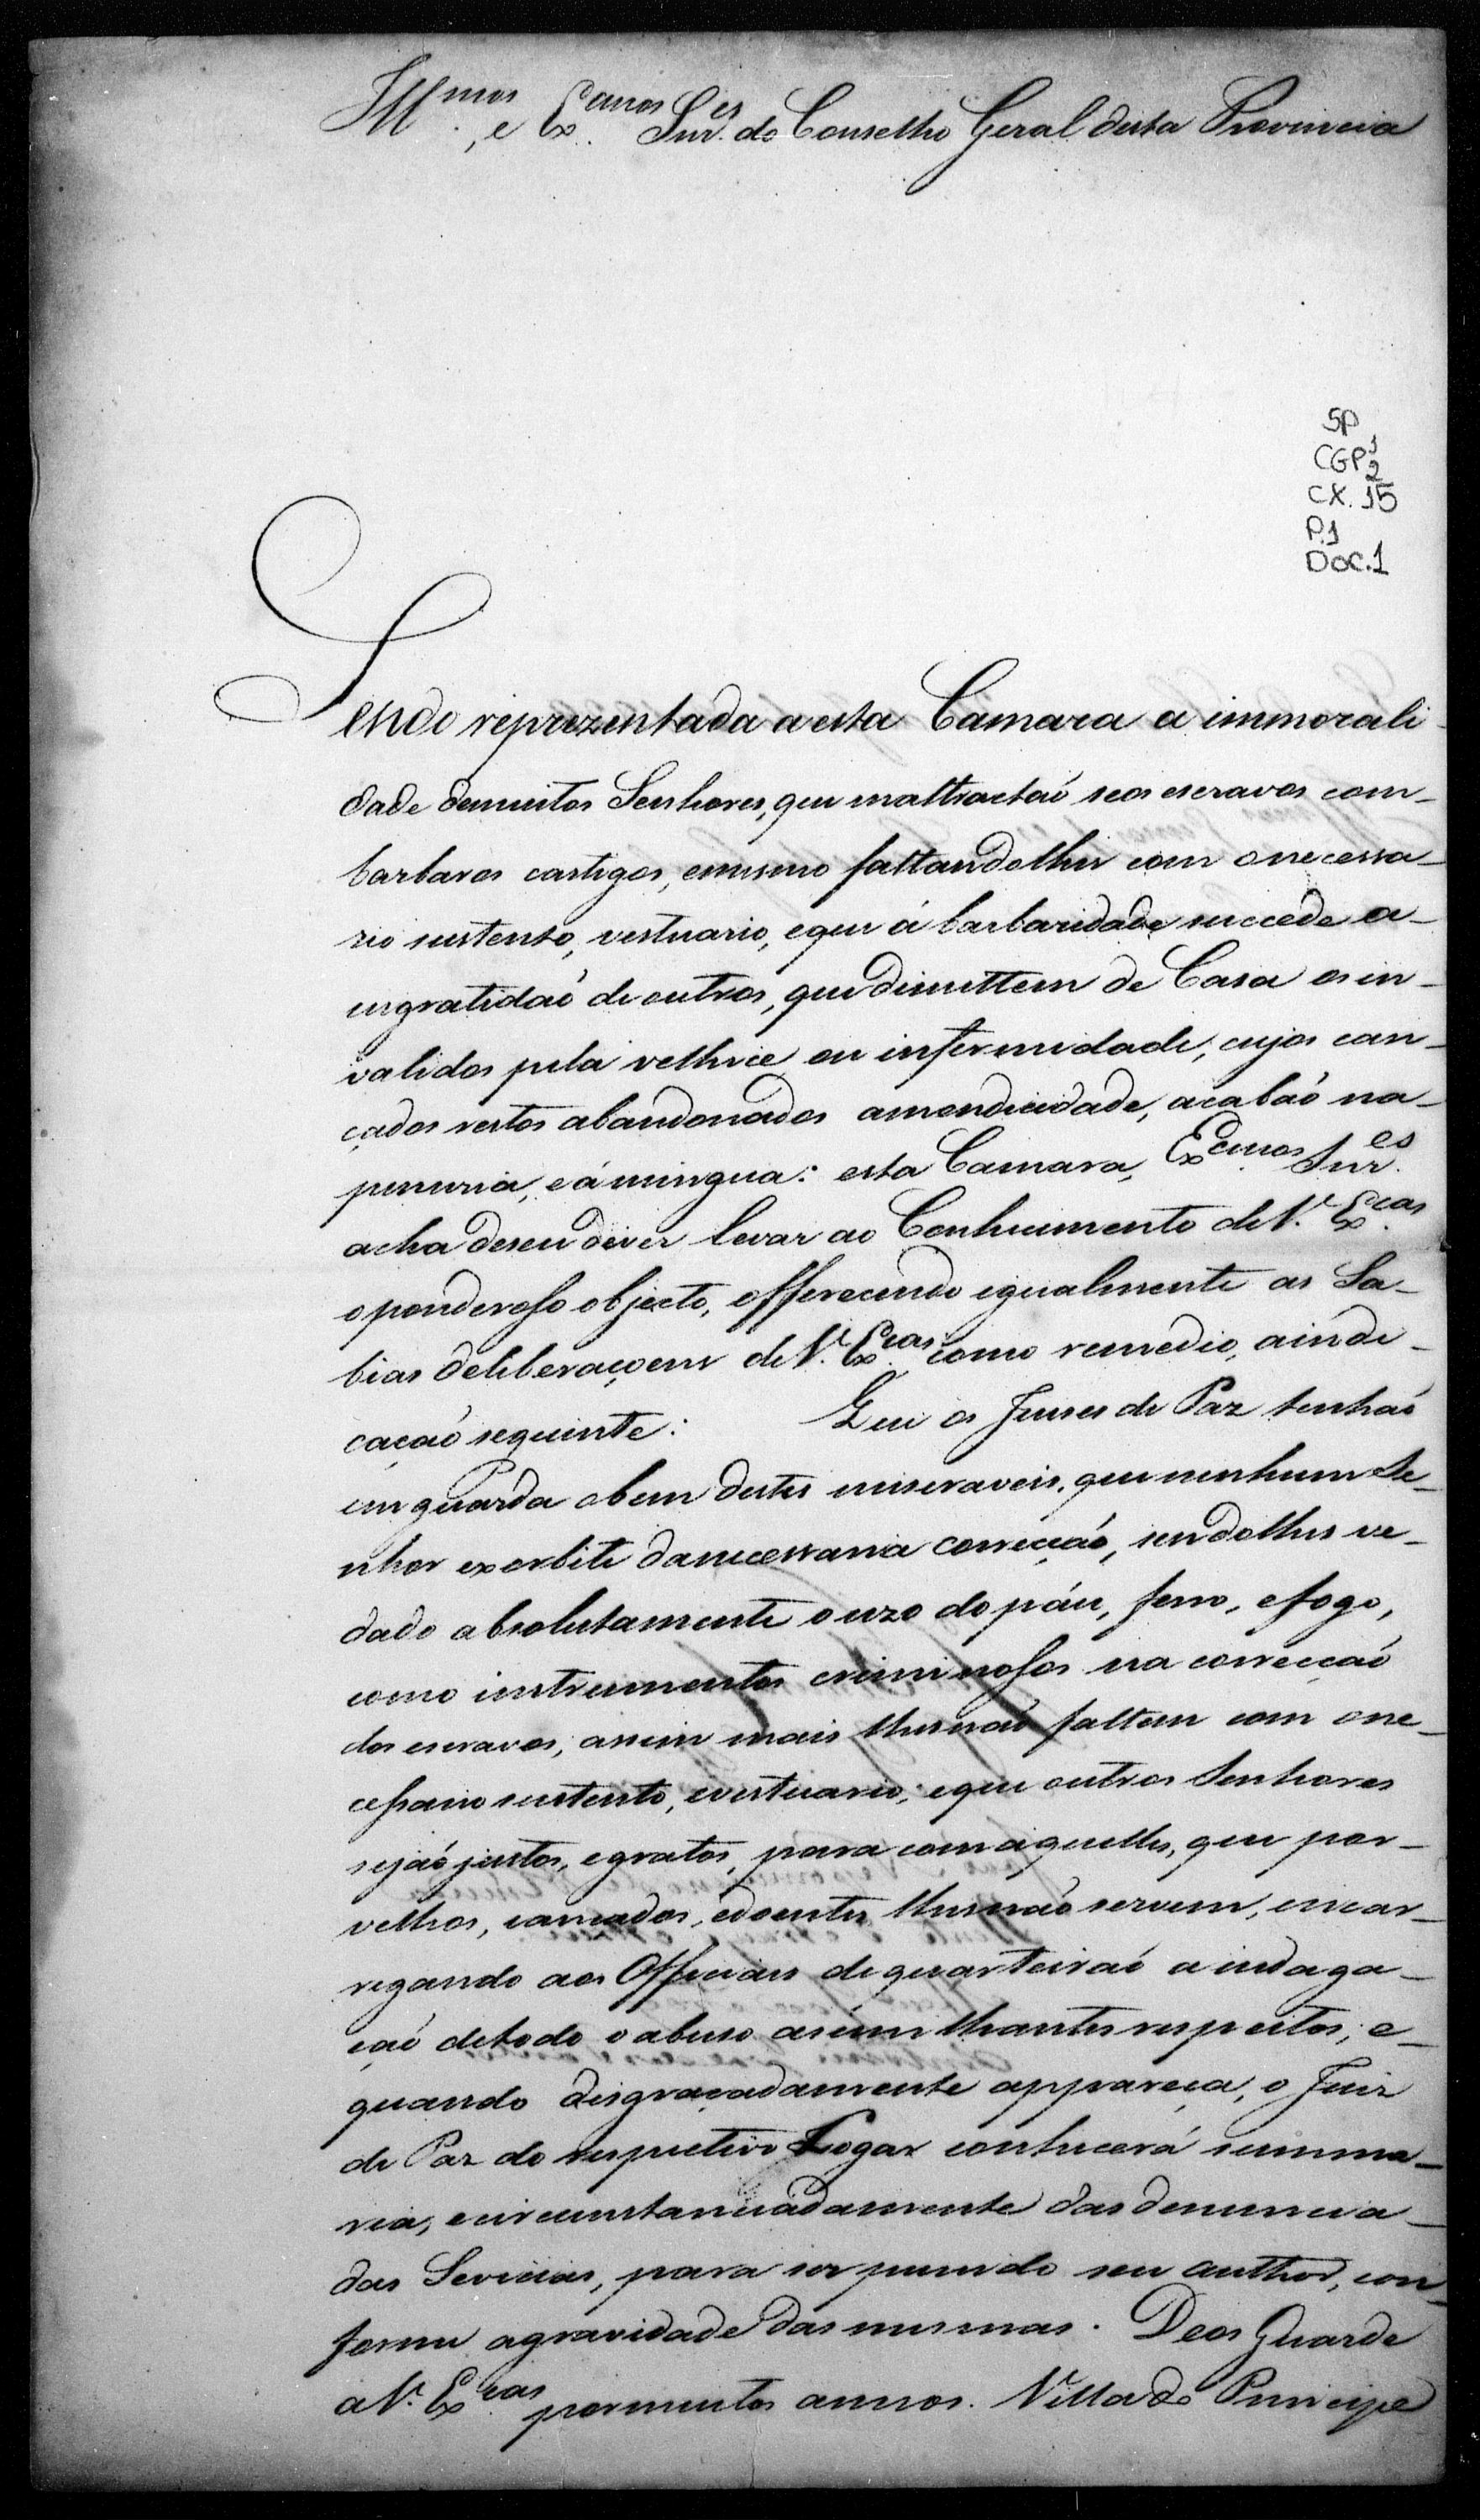 Ill.mos e Ex.cmos Snr.es do Conselho Geral desta Provincia
SP
CGP 1
2
CX. 15
P.1
DOC.1
Sendo reprezentada a esta Camara a immorali-
dade demuitos Senhores, que maltractaõ seos escravos com-
barbaros castigos, emesmo faltandolhes com onecessa-
rio sustento, vestuario, eque á barbaridade succede a-
ingratidaõ de outros, que dimittem de Casa os in-
validos pela velhice ou infermidade, cujos can-
çados restos abandonados amendicidade, acabaõ na-
penuria, e á mingua: esta Camara, Ex.cmos Snr.es
acha deseu dever levar ao Conhecimento de V.ª Ex.cias
oponderoso objecto, offerecendo igualmente as Sa-
bias deliberaçoens de V.ª Ex.cias como remedio, aindi-
caçaõ seguinte: Que os Juises de Paz tenhaõ
em guarda obem destes miseraveis, que nenhum Se-
nhor exorbite danecessaria correcçaõ, sendolhes ve-
dado absolutamente o uzo do páu, ferro, efogo,
como instrumentos criminosos na correcçaõ
dos escravos; assim mais lhesnaõ faltem com one-
cessario sustento, evestuario; eque outros Senhores
sejaõ justos, egratos, para comaquelles, que por-
velhos, cançados, edoentes lhesnaõ servem, encar-
regando aos Officiais dequarteiraõ a indaga-
çaõ detodo o abuso asimilhantes respeitos; e-
quando disgraçadamente appareça, o Juiz
de Paz do respectivo Logar conhecerá summa-
ria, ecircunstanciadamente das denuncia-
das Sevicias, para ser punido seu author, con-
forme agravidade das mesmas. Deos Guarde
a V.ª Ex.cias pormuitos annos. Villa do Principe